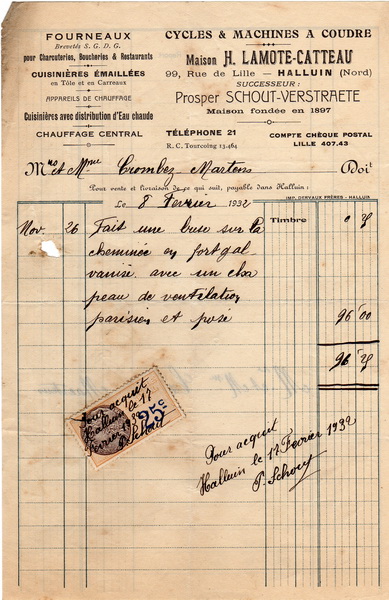 FOURNEAUX
Brevetés S. G. D. G.
pour Charcuteries, Boucheries & Restaurants
CUISINIÈRES ÉMAILLÉES
en Tôle et en Carreaux
APPAREILS DE CHAUFFAGE
Cuisinières avec distribution d'Eau chaude
CHAUFFAGE CENTRAL
CYCLES & MACHINES A COUDRE
Maison H. LAMOTE-CATTEAU
99, Rue de Lille — HALLUIN (Nord)
SUCCESSEUR:
Prosper SCHOUT-VERSTRAETE
Maison fondée en 1897
TÉLÉPHONE 21
R. C. Tourcoing 13.464
COMPTE CHÈQUE POSTAL
LILLE 407.43
Mr et Mme Crombez Martens Doit
Pour vente et livraison de ce qui suit, payable dans Halluin :
IMP. DERVAUX FRÈRES - HALLUIN
Le 8 Fevrier 1932
Timbre 0 25
Nov. 26 Fait une buse sur la
cheminée en fort gal
vanisé avec un cha
peau de ventilation
parisien et posé 96 00
96 25
Pour acquit
Halluin le 12
Fevrier 1932
Pour acquit
Halluin le 12 Fevrier 1932
P. Schout